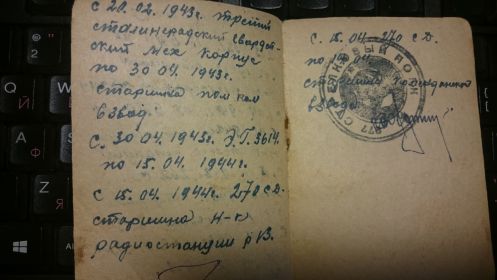 с 20.02. 1943г. третий
сталинградский гвардей-
ский мех. корпус
по 30 04. 1943г.
старшина пом ком
взвод.
с. 30 04. 1943г. Э.Г. 3614.
по 15.04. 1944г.
с 15.04. 1944г. 240 с.Д.
старшина н-к
радиостанции РВ.
с. 15. 04 240 с.Д.
по 04
старшина
взвода
877 СТРЕЛКОВЫЙ ПОЛК